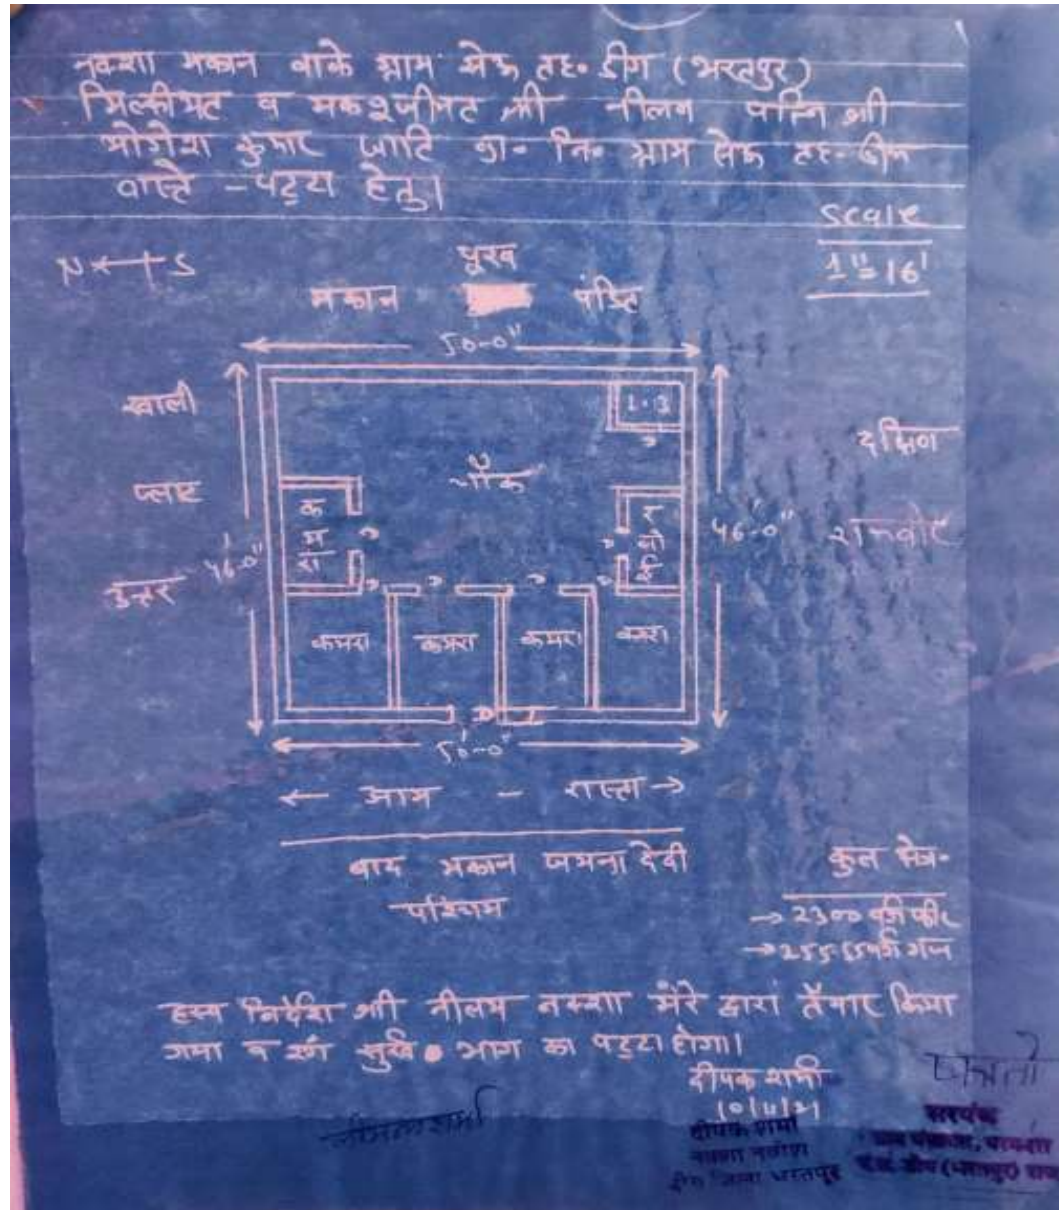 नक्शा मकान वाके ग्राम सेऊ तह॰ डीग (भरतपुर)
मिल्कीयत व मकबूजीयत श्री नीलम पत्नि श्री
योगेश कुमार जाति ब्रा॰ नि॰ ग्राम सेऊ तह॰ डीग
वास्ते - पट्टा हेतु।
Scale
1"=16'
N S
पूरब
मकान पंडित
50-0"
खाली
प्लाट
उत्तर
46-0"
चौक
कमरा
रसोई
46-0"
दक्षिण
कमरा कमरा कमरा कमरा
50-0"
← आम - रास्ता →
बाद मकान जमना देवी
पश्चिम
कुल क्षेत्र॰
→ 2300 वर्ग फीट
→ 255.55 वर्ग गज
हस्व निर्देश श्री नीलम नक्शा मेरे द्वारा तैयार किया
गया व रंग सुर्ख भाग का पट्टा होगा।
दीपक शर्मा
दीपक शर्मा
नक्शा नवीस
डीग जिला भरतपुर
सरपंच